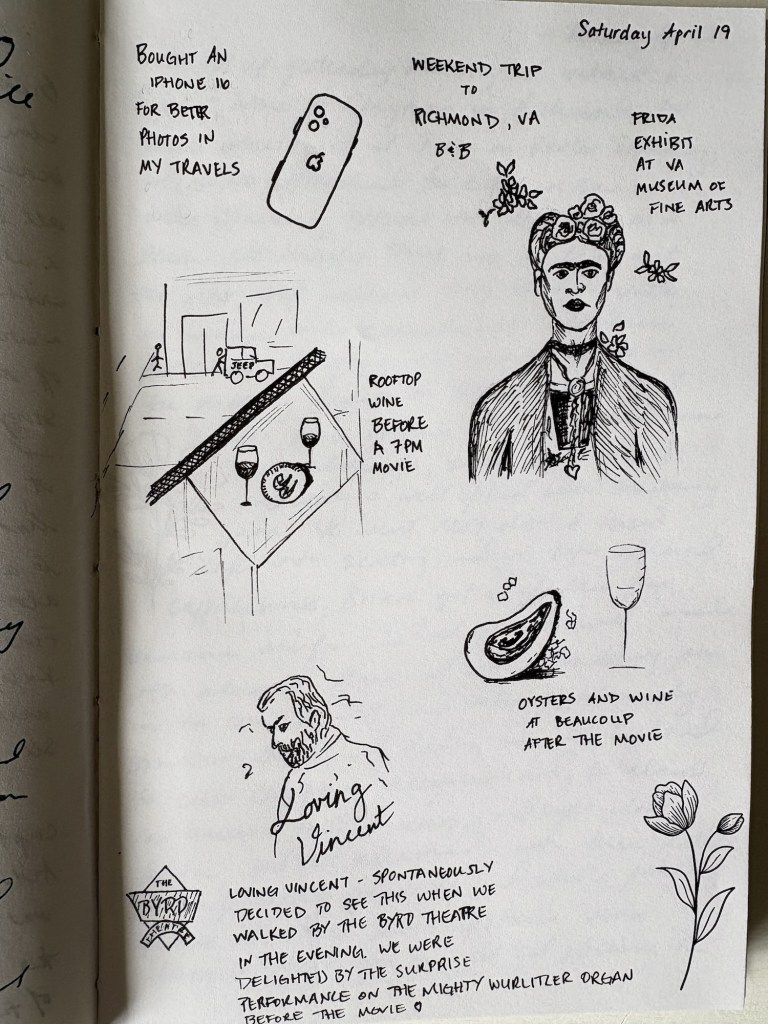 Saturday April 19
BOUGHT AN
IPHONE 16
FOR BETER
PHOTOS IN
MY TRAVELS
WEEKEND TRIP
TO
RICHMOND, VA
B&B
FRIDA
EXHIBIT
AT VA
MUSEUM OF
FINE ARTS
JEEP
ROOFTOP
WINE
BEFORE
A 7PM
MOVIE
OYSTERS AND WINE
AT BEAUCOUP
AFTER THE MOVIE
Loving
Vincent
THE
BYRD
THEATRE
LOVING VINCENT - SPONTANEOUSLY
DECIDED TO SEE THIS WHEN WE
WALKED BY THE BYRD THEATRE
IN THE EVENING. WE WERE
DELIGHTED BY THE SURPRISE
PERFORMANCE ON THE MIGHTY WURLITZER ORGAN
BEFORE THE MOVIE ♡